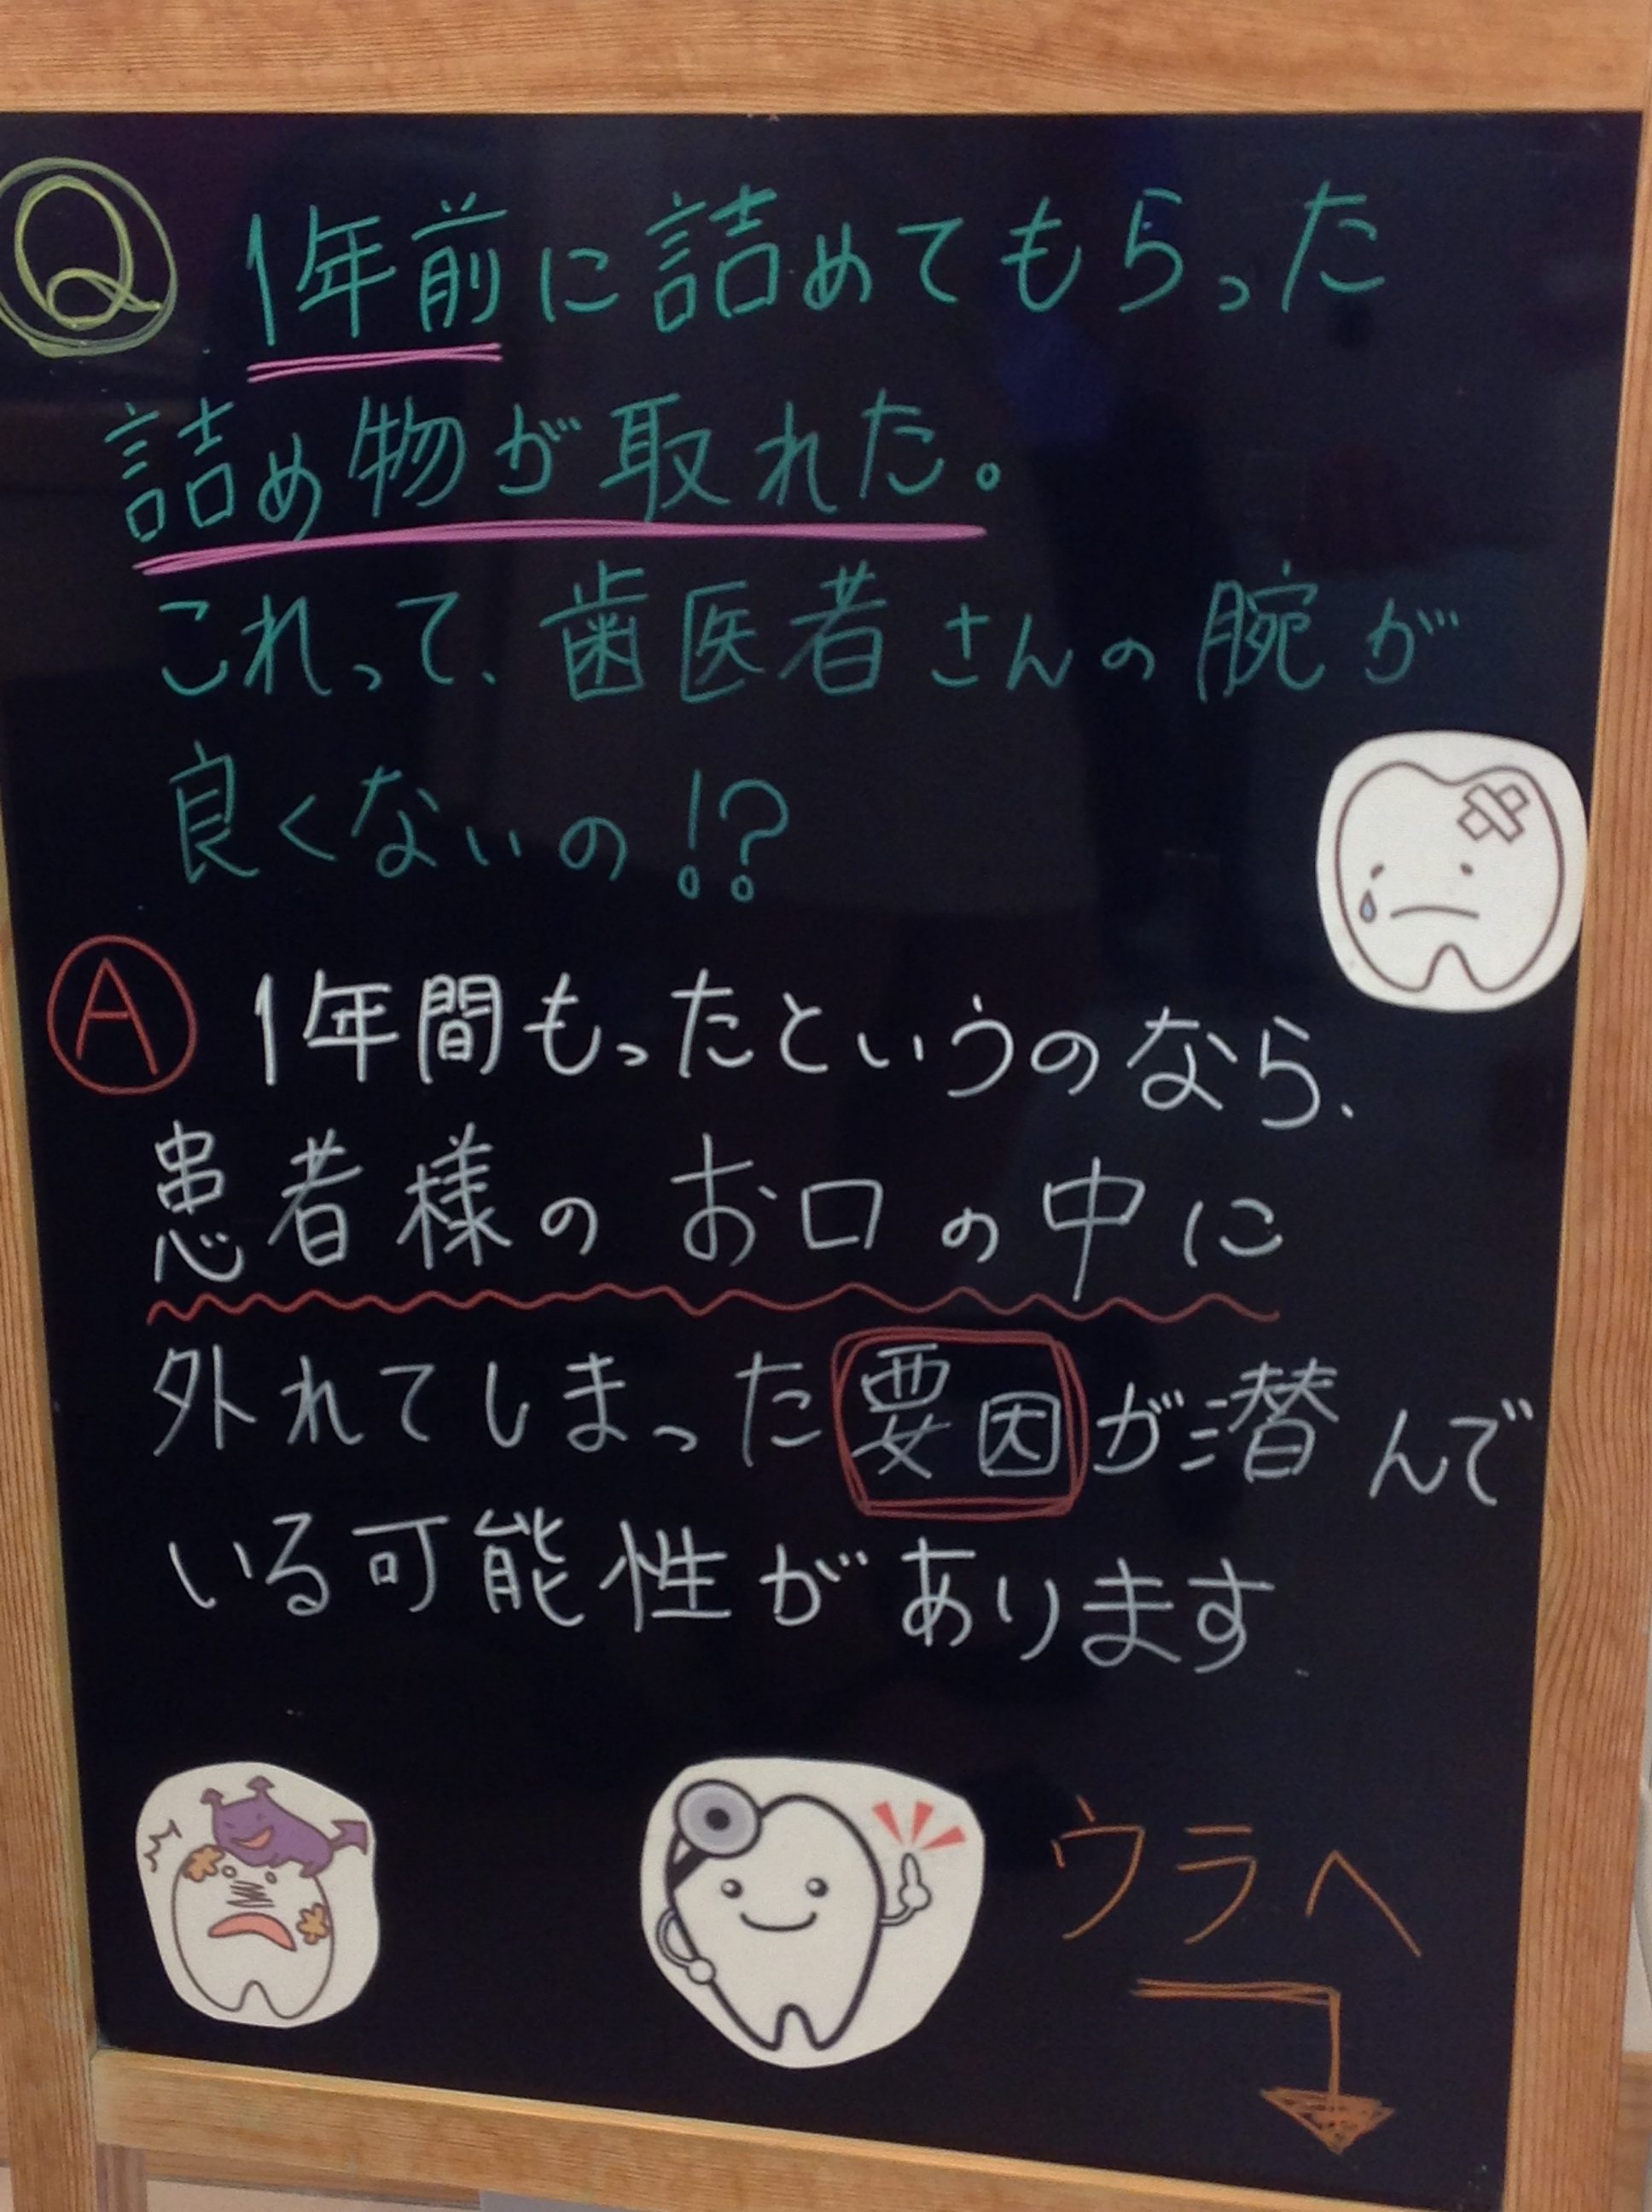 Q 1年前に詰めてもらった
詰め物が取れた。
これって、歯医者さんの腕が
良くないの!?
A 1年間もったというのなら、
患者様のお口の中に
外れてしまった要因が潜んで
いる可能性があります
ウラへ